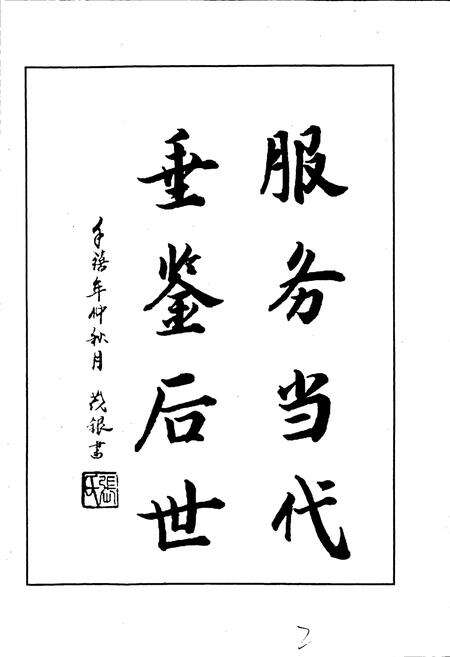 服务当代
垂鉴后世
千禧年仲秋月 茂银书
张氏